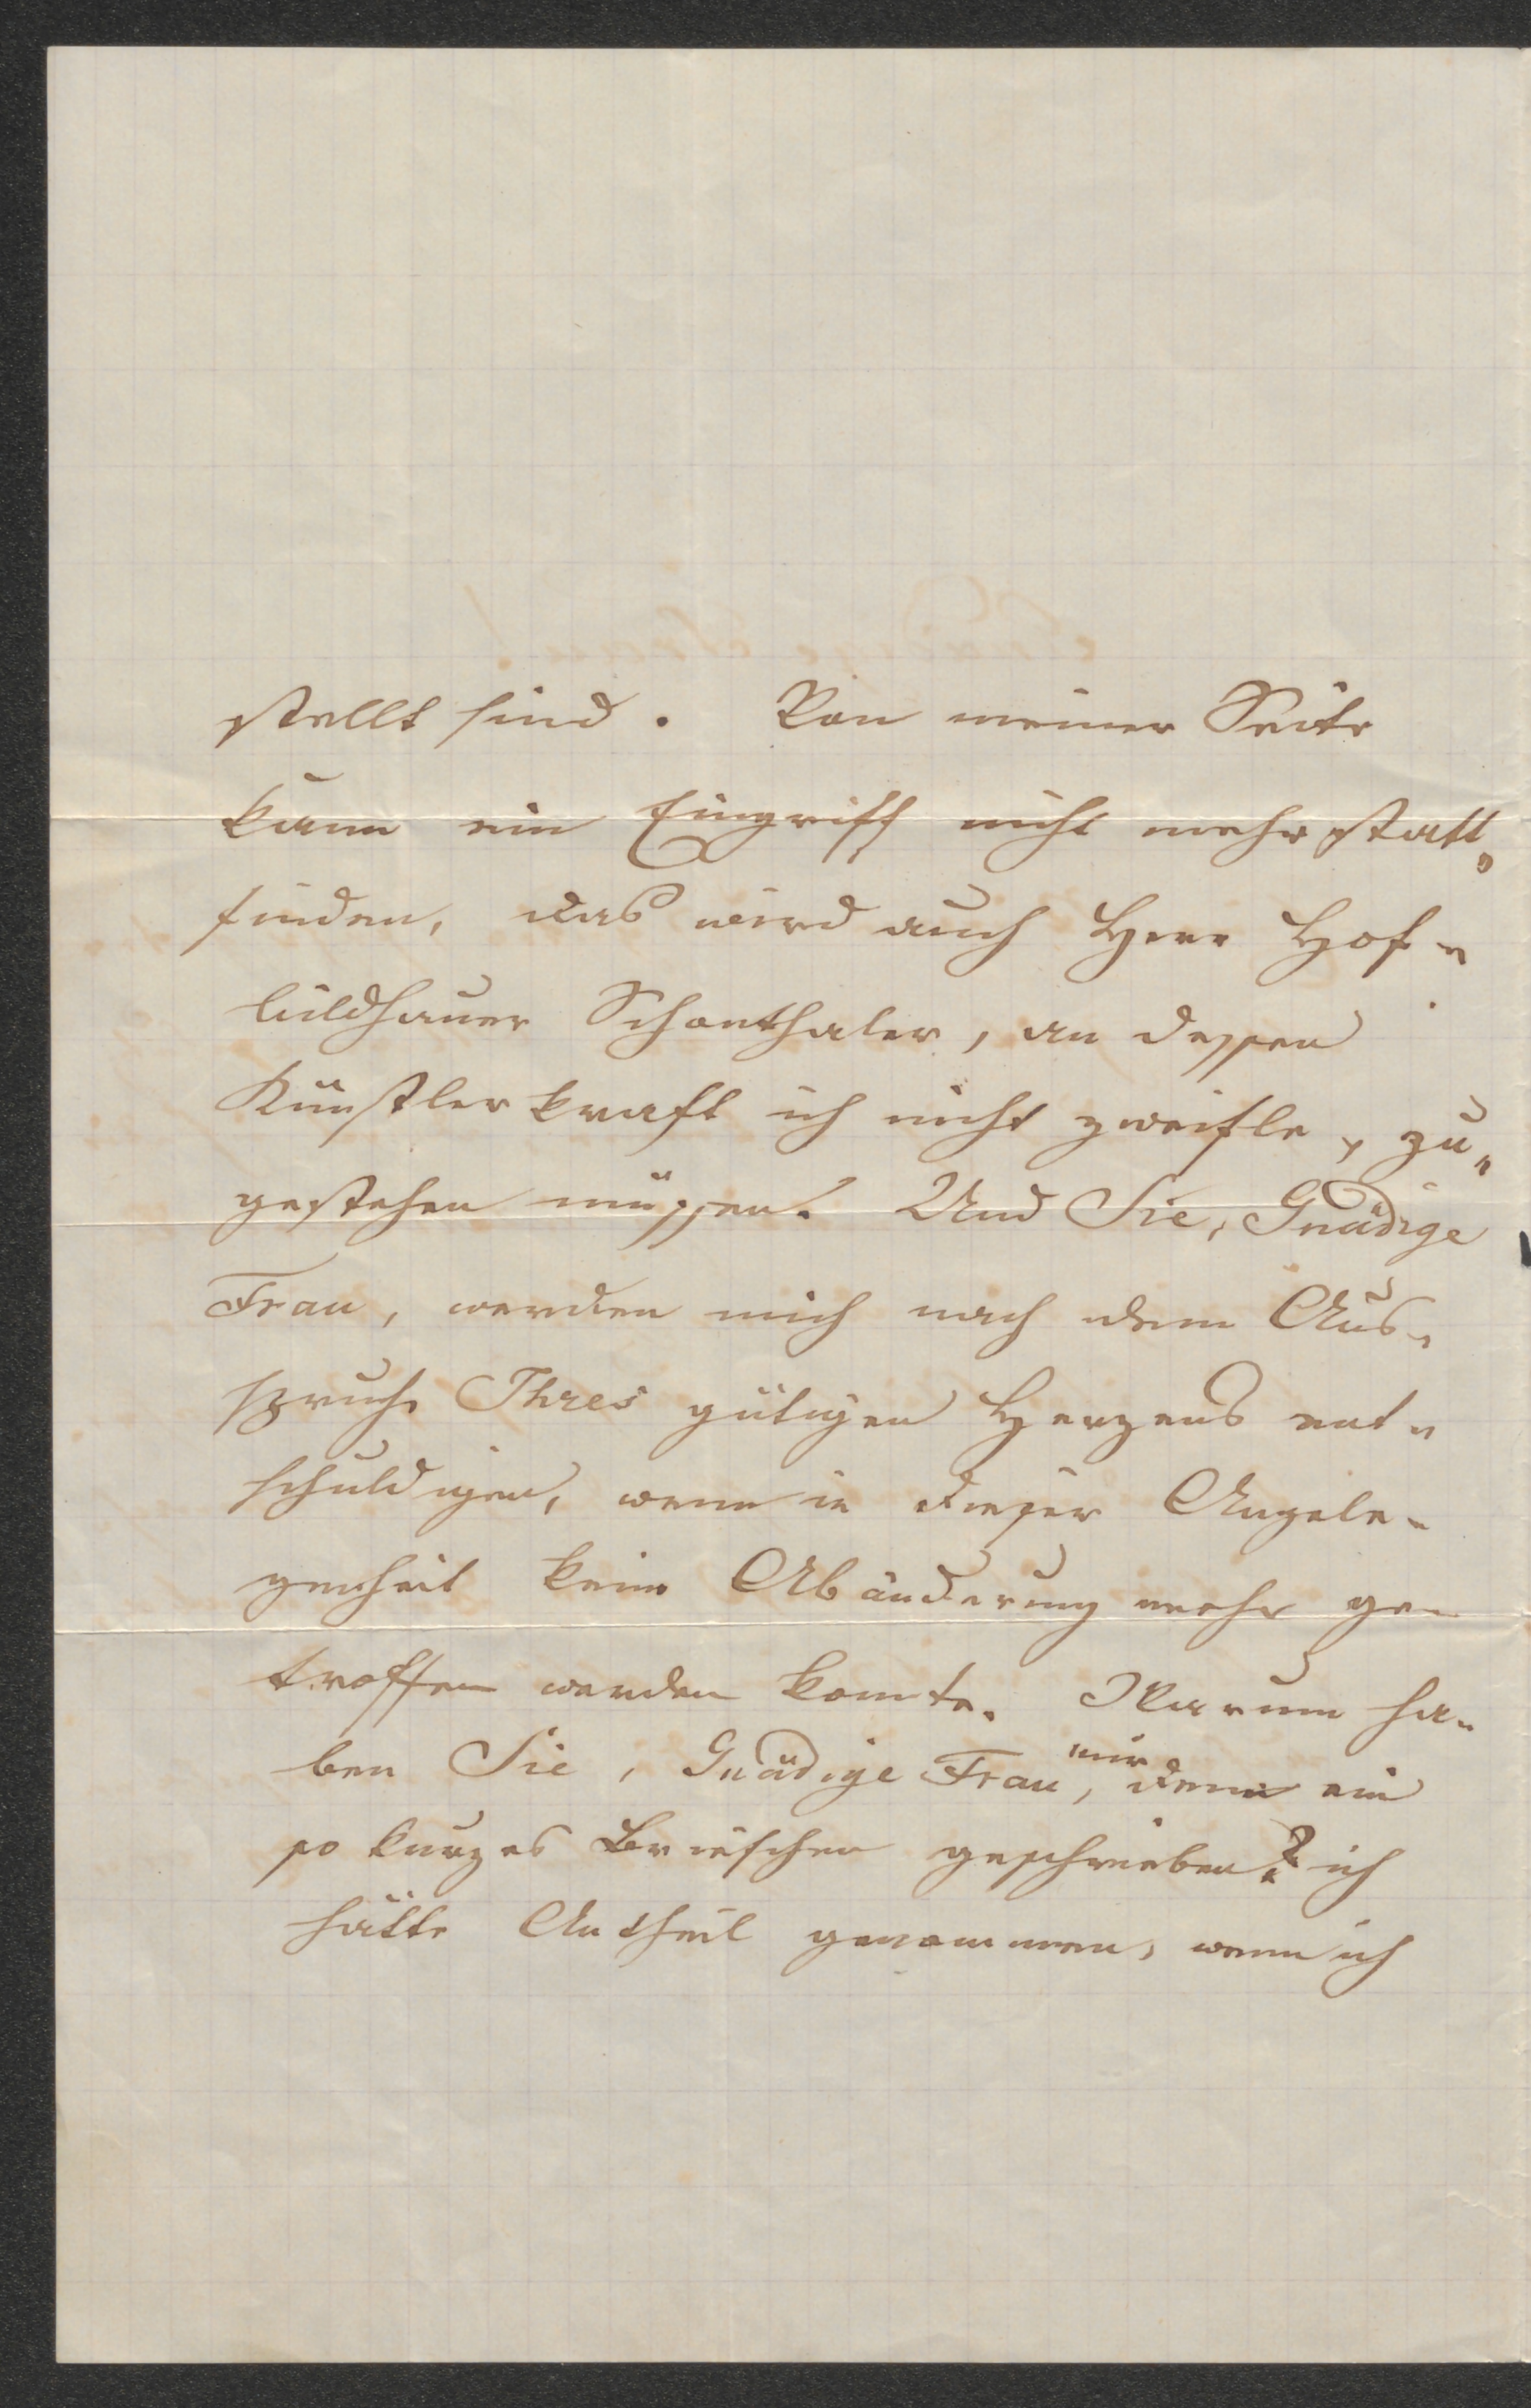 stellt sind. Von meiner Seite
kann ein Eingriff nicht mehr statt„
finden, das wird auch Herr Hof„
bildhauer Schönthaler, an dessen
Künstlerkraft ich nicht zweifle, zu„
gestehen müssen. Und Sie, Gnädige
Frau, werden mich nach dem Aus„
spruche Ihres gütigen Herzens ent„
schuldigen, wenn in dieser Angele„
genheit keine Abänderung mehr ge„
troffen werden konnte. Warum ha„
ben Sie, Gnädige Frau, mir denn ein
so kurzes Briefchen geschrieben? ich
hätte Antheil genommen, wenn ich